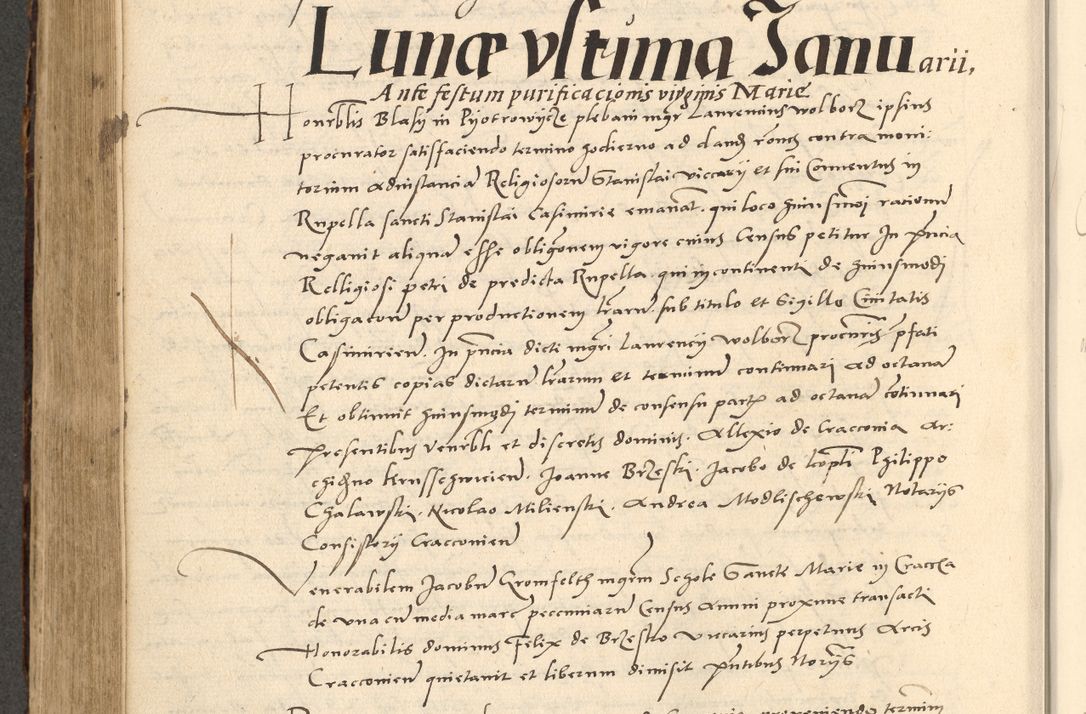 Lunæ vltima Januarii,
Ante festum purificacionis virginis Marie
Honrblis Blasij in Pyotrowycze plebani mgr Laurencius wolborz ipsius
procurator satisfaciendo termino hodierno ad dand rones contra moni:
torium ad instanciã Religiosorũ Stanislai viccarij et sui Conuentus in
Rupella sancti Stanislai Casimirie emanat. qui loco huiusmoi rationũ
negauit aliquã esse obligonem vigore cuius Census petitur In pncia
Relligiosi petri de predicta Rupella. qui incontinenti de huiusmodi
obligacone per productionem lrarũ sub titulo et Sigillo Ciuitatis
Casimirien. In pncia dicti mgri Laurencij wolborz procuris pfati
petentis copias dictarũ lrarum et terminũ continuari ad octauã
Et obtinuit huiusmodi terminũ de consensu partiũ ad octauã cotinuari
Presentibus Venrbli et discretis dominis. Allexio de Cracouia Ar:
chidno kruss Joanne Brzeski. Jacobo de Philippo
Chalawski. Nicolao Milienski. Andrea Modlischewski Notarijs
Consistorij Cracouien
Venerabilem Jacobũ Gromfelth mgrm Schole Sancte Marie in Cracca
de vna cũ media marc pecuniarũ Census Anni proxime transacti
Honorabilis dominus Felix de Brzesko vicarius perpetuus Arcis
Cracouien quietauit et liberum dimisit pntibus Norijs
termini